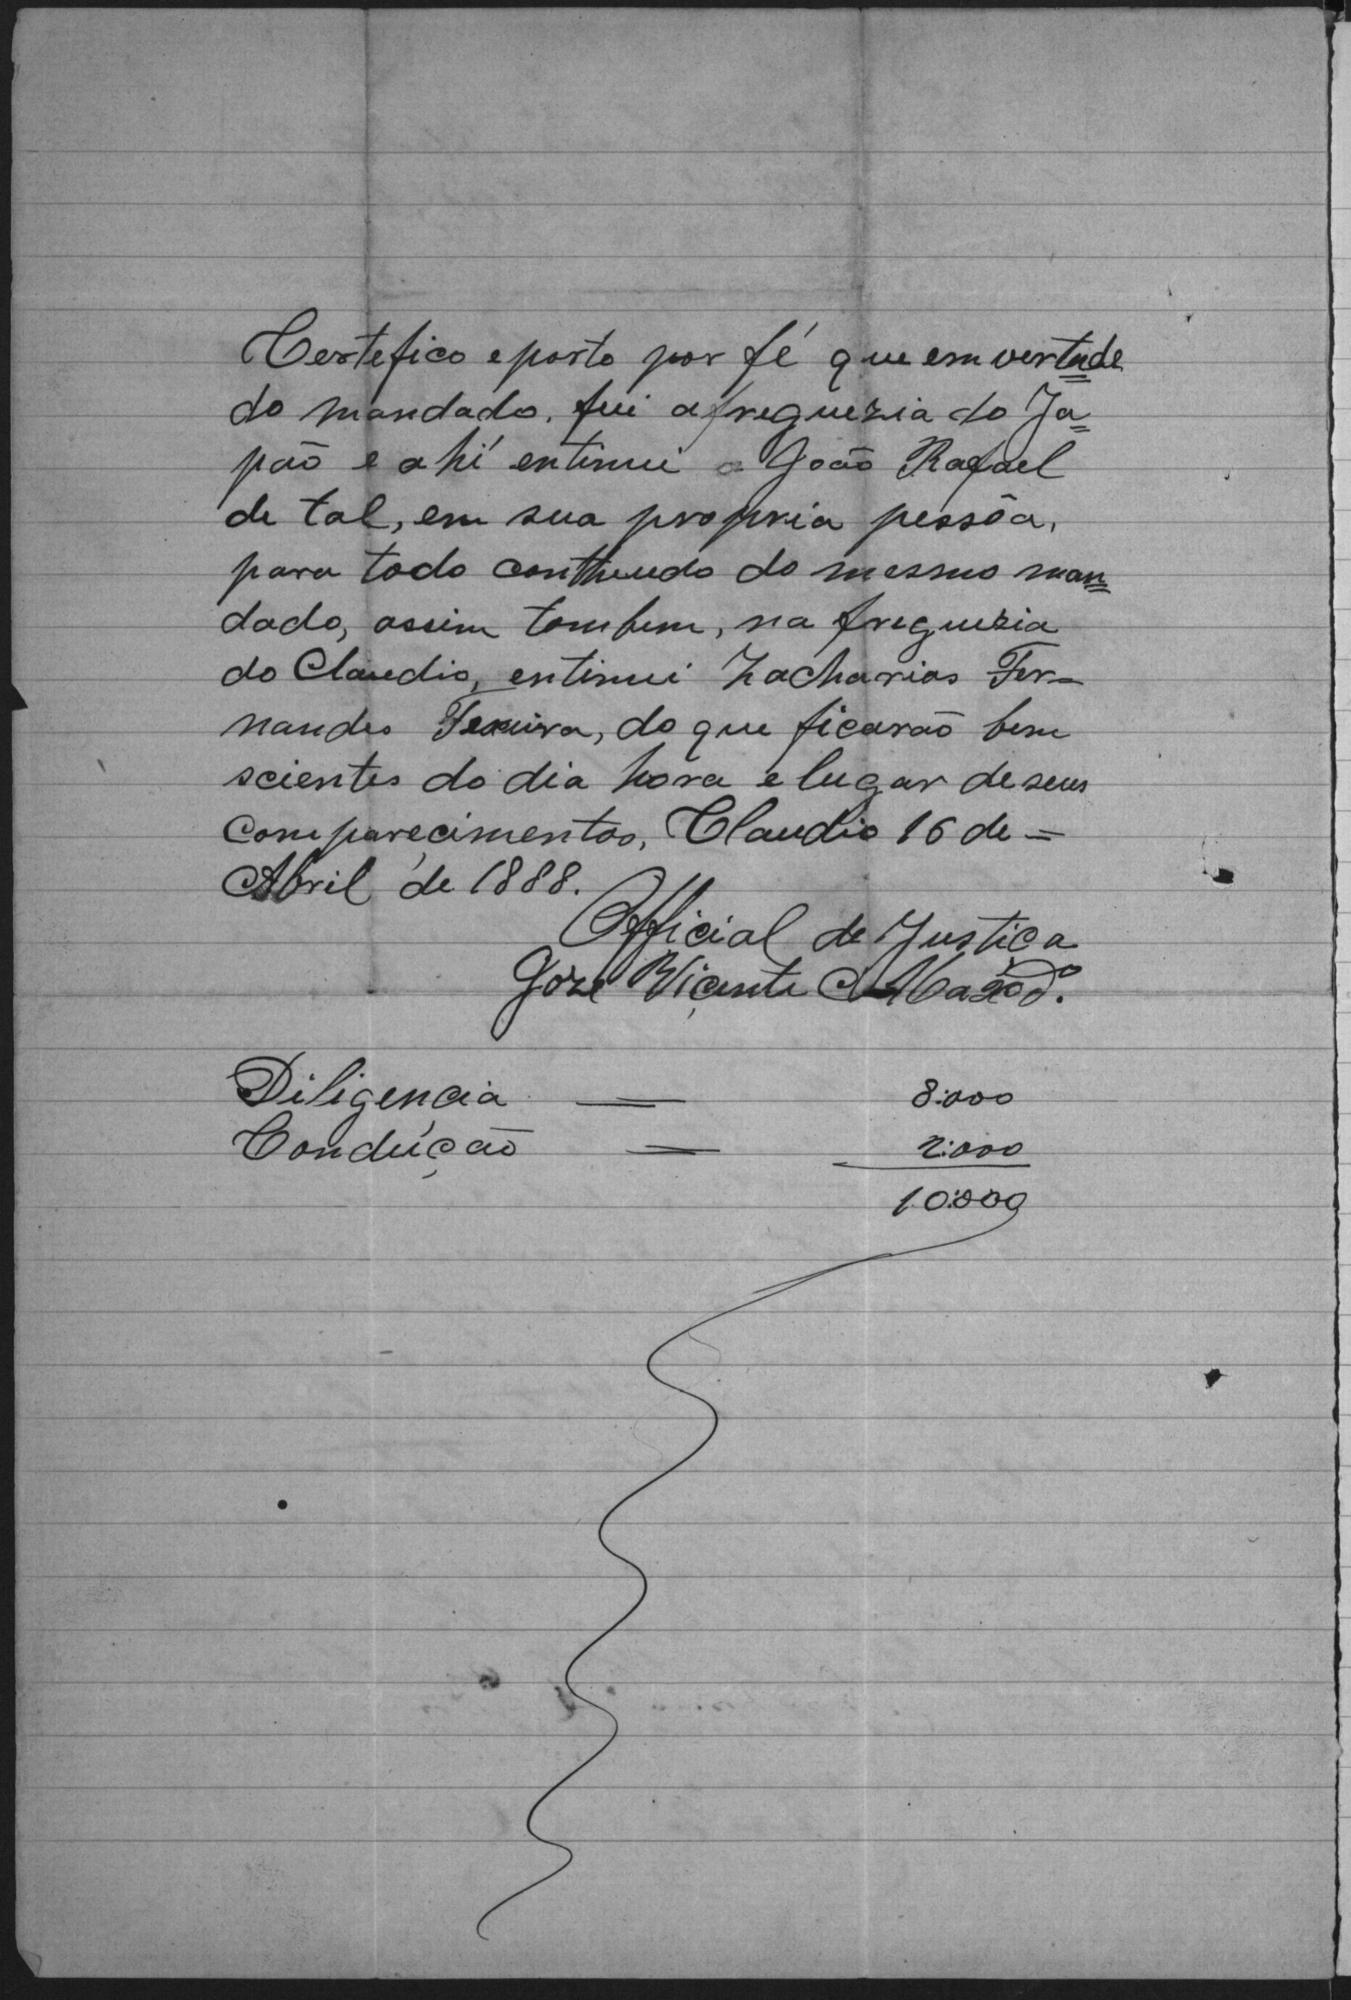 Certefico e porto por fé que em vertude
do mandado. fui a freguezia do Ja=
pão e ahi entimei a João Rafael
de tal, em sua propria pessôa,
para todo contheudo do mesmo man=
dado, assim tambem, na freguezia
do Claudio, entimei Zacharias Fer=
nandes Texeira, do que ficarão bem
scientes do dia hora e lugar de seus
comparecimentos, Claudio 16 de =
Abril de 1888.
Official de Justiça
Joze Vicente
Diligencia = 8:000
Condução = 2:000
10:000